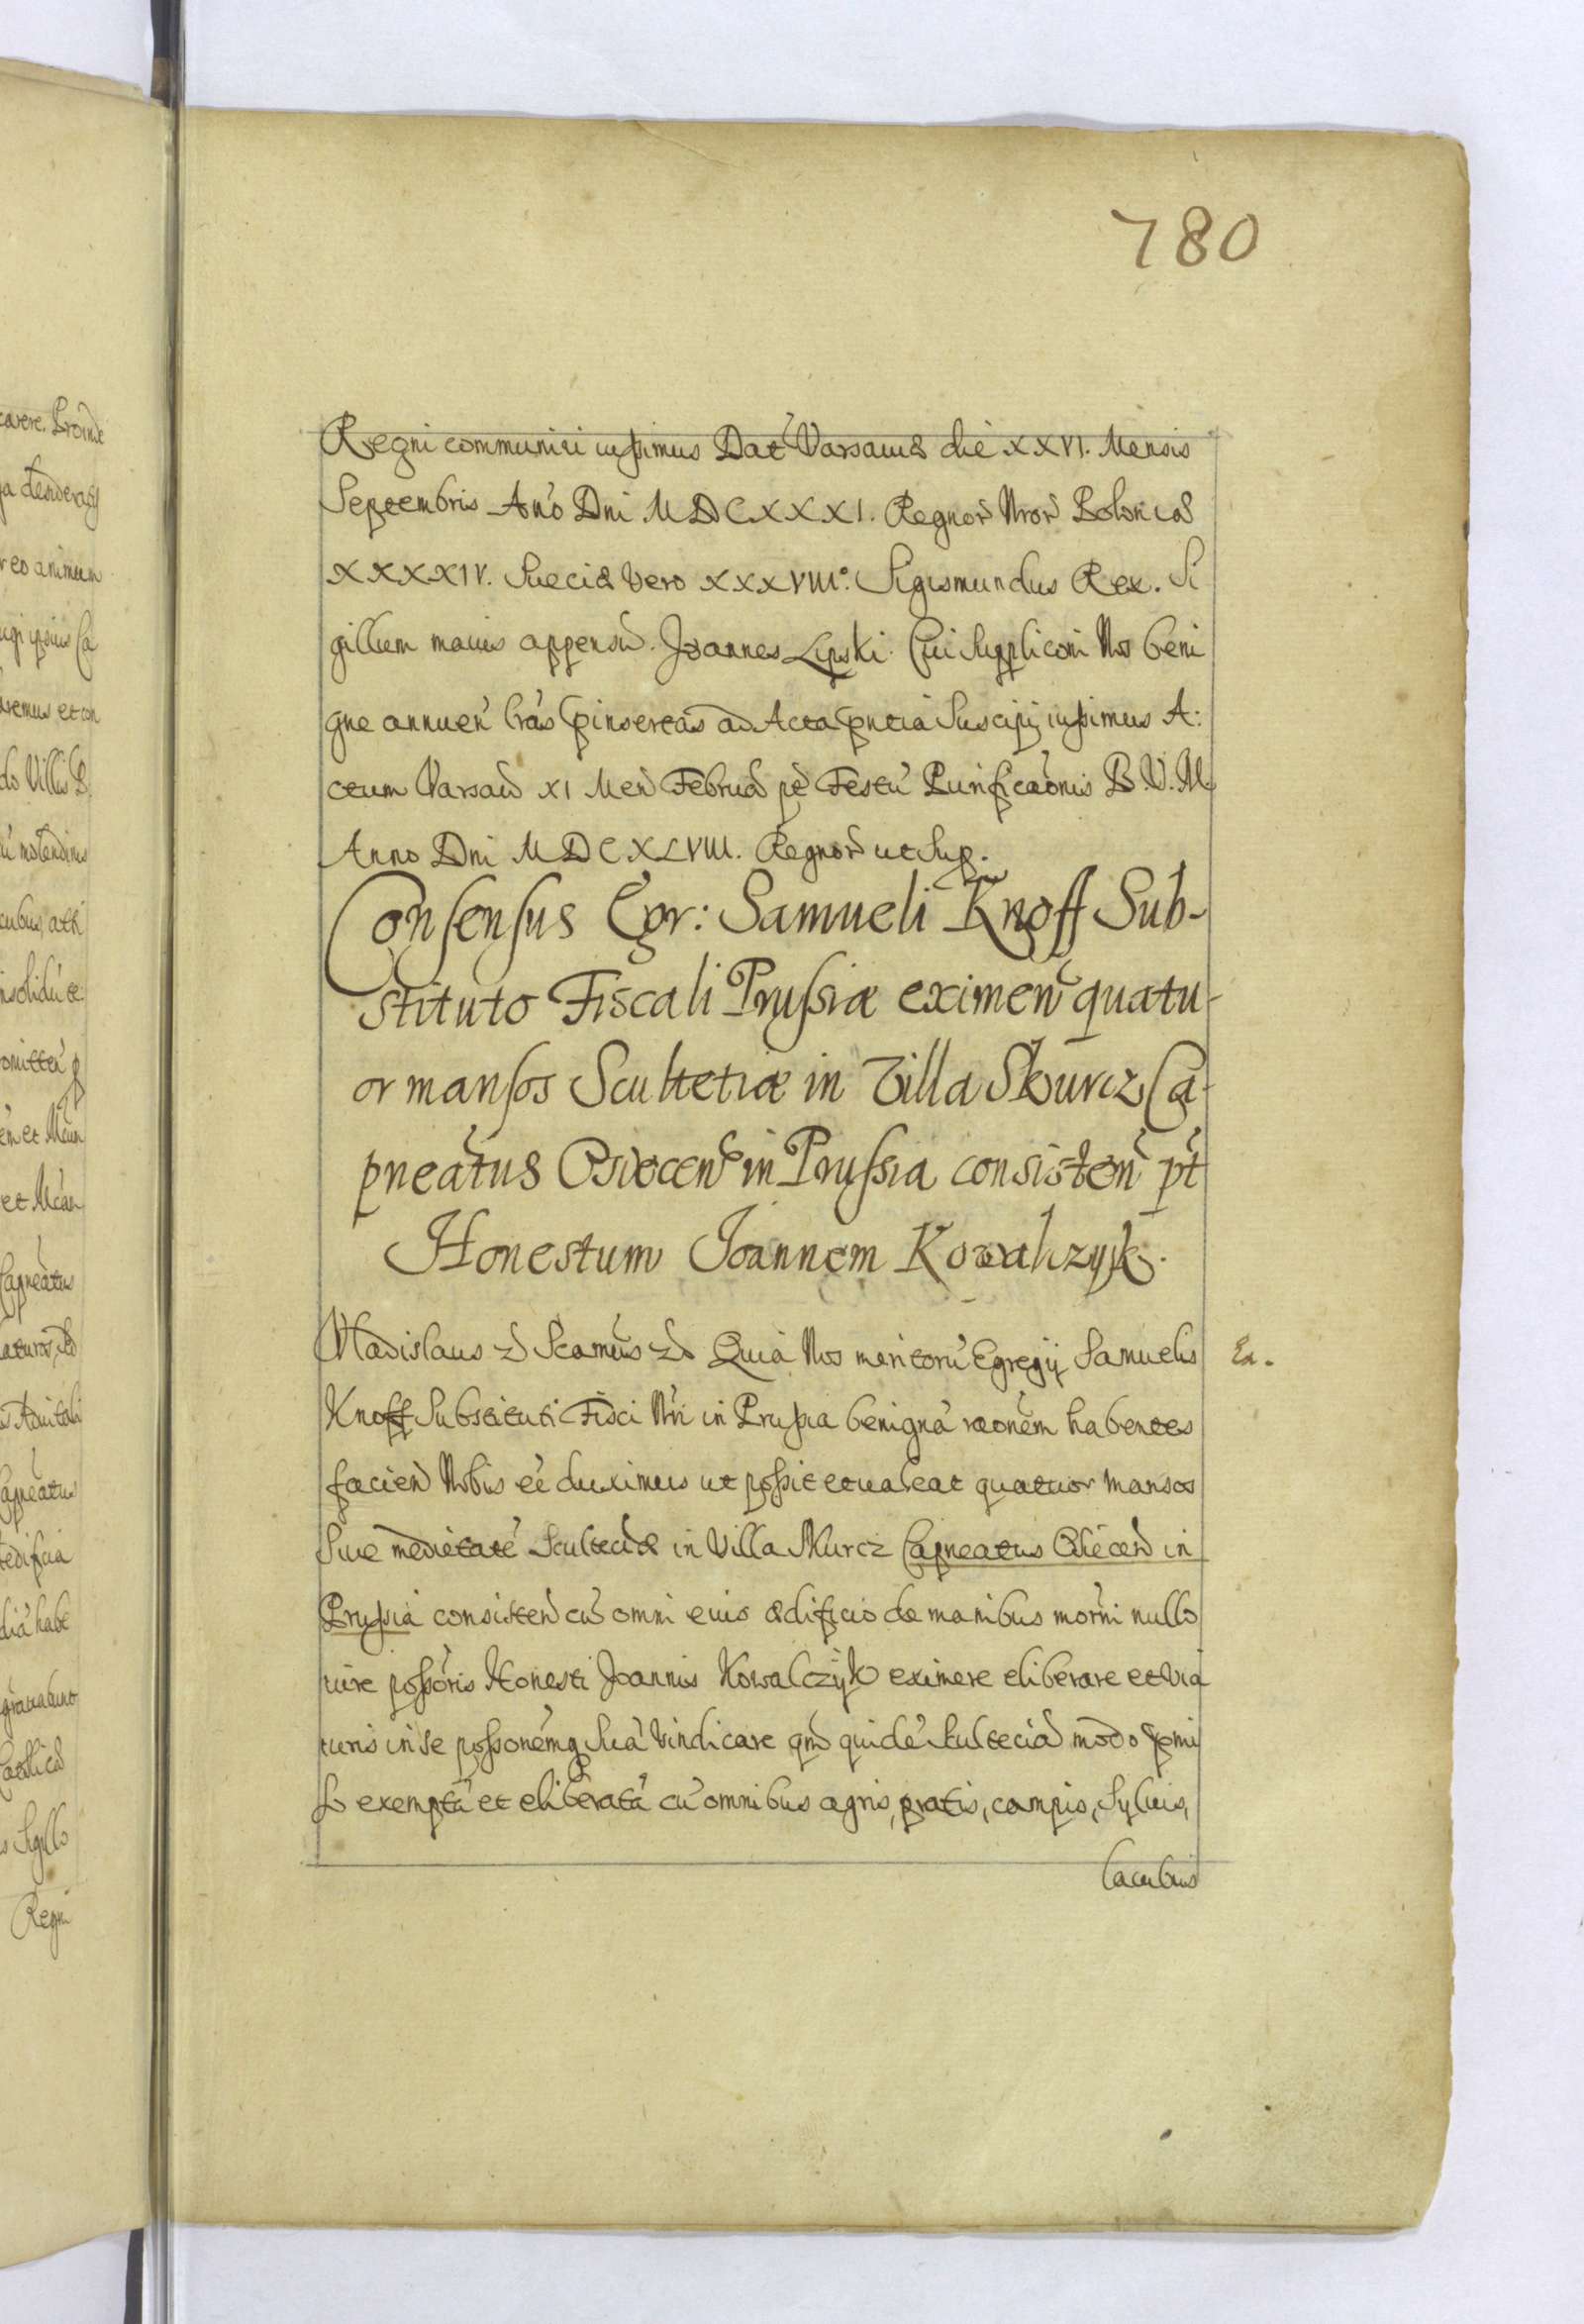 780
Regni communiri iussimus Dat Varsauiæ die XXVI. Mensis
Septembris Ano Dni MDCXXXI. Regnor Nror Poloniæ
XXXXIV. Sueciæ Vero XXXVIII°. Sigismundus Rex. Si
gillum maius appensu. Joannes Lipski. Cui Supplicōni Nos beni
gne annuen lrās pinsertas ad Acta pntia Suscipi iussimus A:
ctum Varsav XI Men Februa pt Festū Purificaonis B.V.M.
Anno Dni MDCXLVIII. Regnor ut Sup.
Consensus Egr: Samueli Knoff Sub-
stituto Fiscali Prussiæ eximen quatu-
or mansos Scultetiæ in Villa Skurcz Ca-
pneatus Osiecen in Prussia consisten pt
Honestum Joannem Kowalczyk.
Vladislaus etc Scamus etc Quia Nos meritorū Egregij Samuelis
En.
Knoff Substituti Fisci Nri in Prussia benignā raonem habentes
facien Nobis eē duximus ut possit et ualeat quatuor mansos
Siue medietatē Scultetiæ in Villa Skurcz Capneatus Osiecen in
Prussia consisten cū omni eius ædificio de manibus morni nullo
iure possoris Honesti Joannis Kowalczyk eximere eliberare et via
iuris in se possonemq Suā Vindicare qm quidē Scultetiā modo pmi
so exemptā et eliberatā cū omnibus agris, pratis, campis, Syluis,
lacubus
carere. Proinde
eo animum
ugi ipsius Ca
emus et con
do Villis B.
molendinis
insolidū te
omitten
em et
et
Capneatus
Capneatus
ædificia
habe
grauabunt
Catholica
Sigillo
Regni